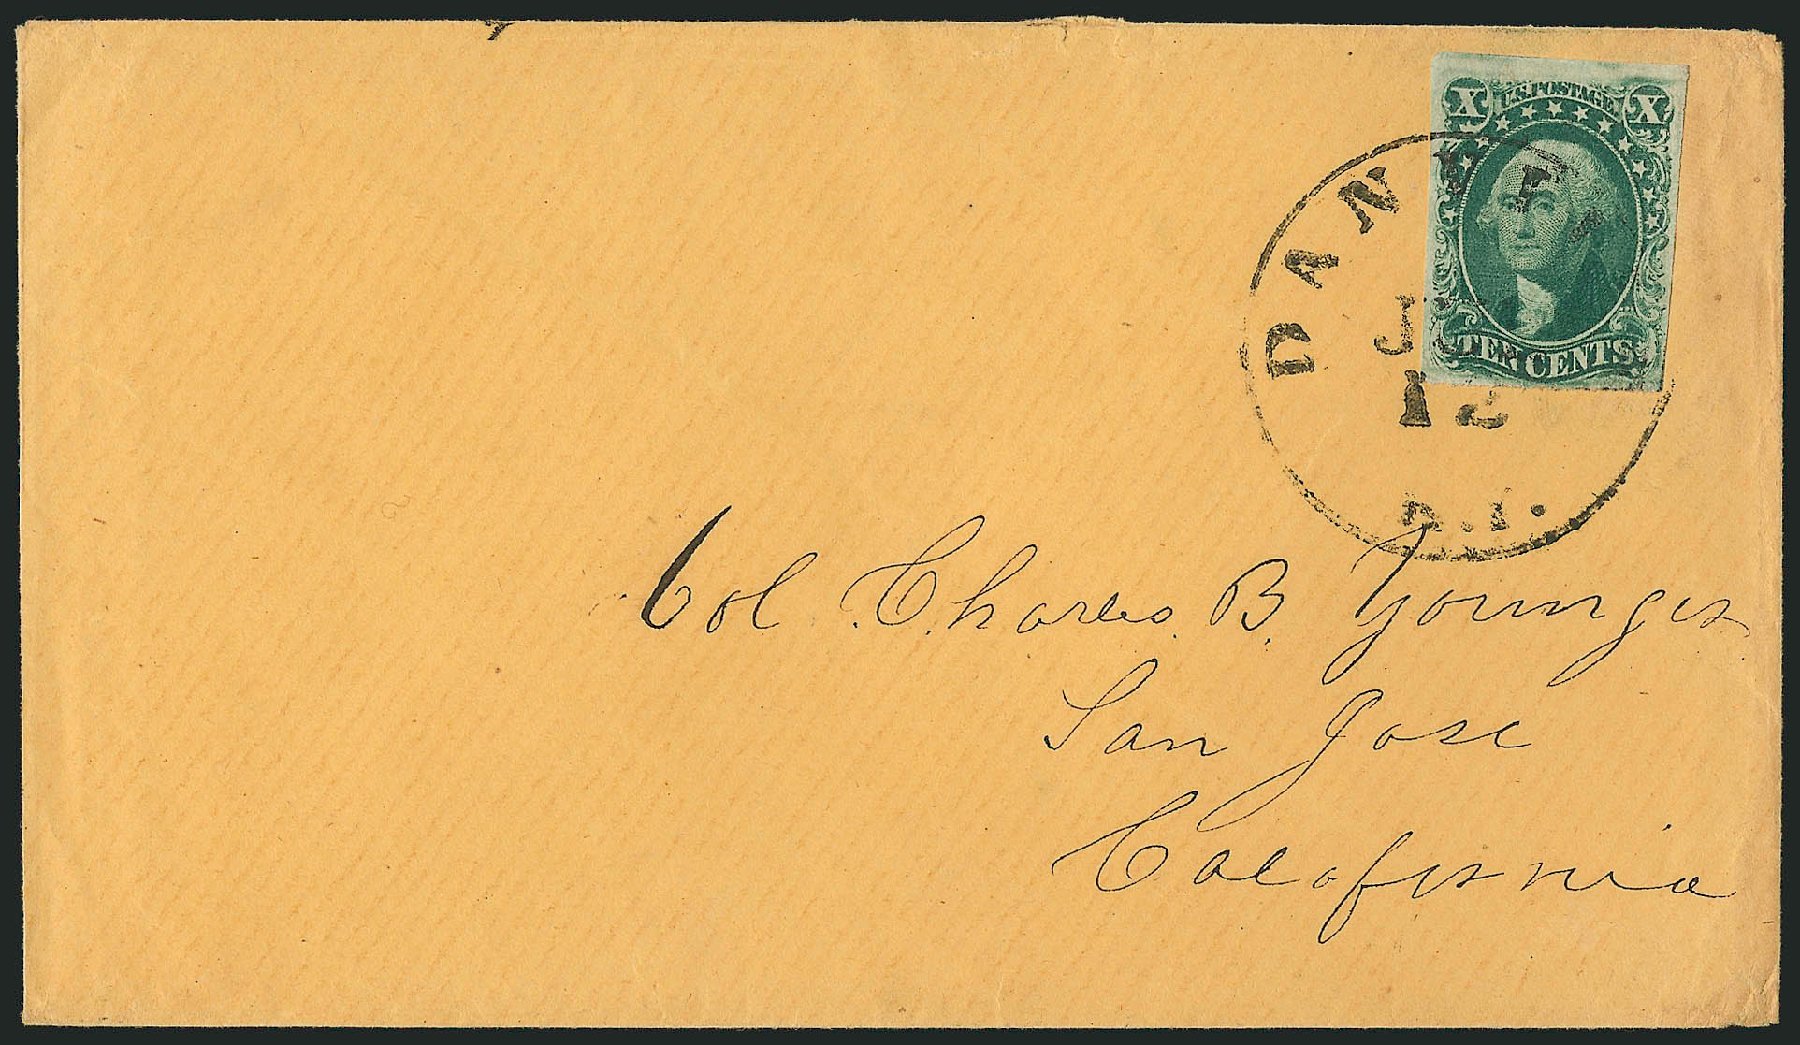 X U.S. POSTAGE X
TEN CENTS
12
Col Charles B. Younger
San Jose
California